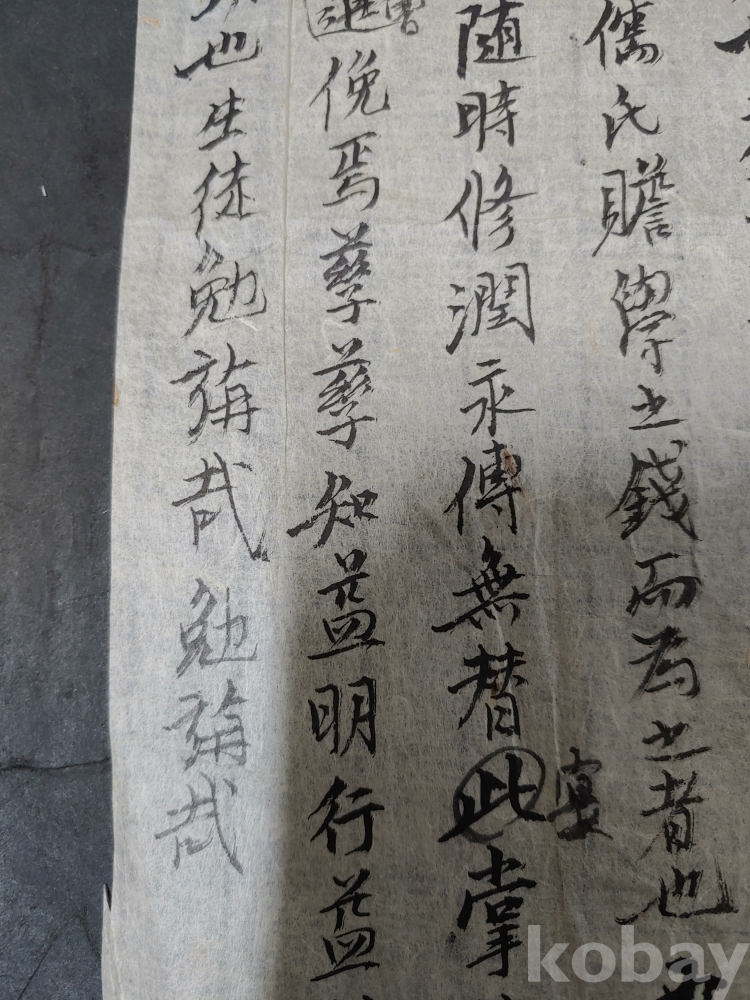 也
儒氏贍學之錢而為之者也
隨時修潤永傳無替此掌
寔
俛焉孳孳知益明行益
也生徒勉旃哉勉旃哉
kobay